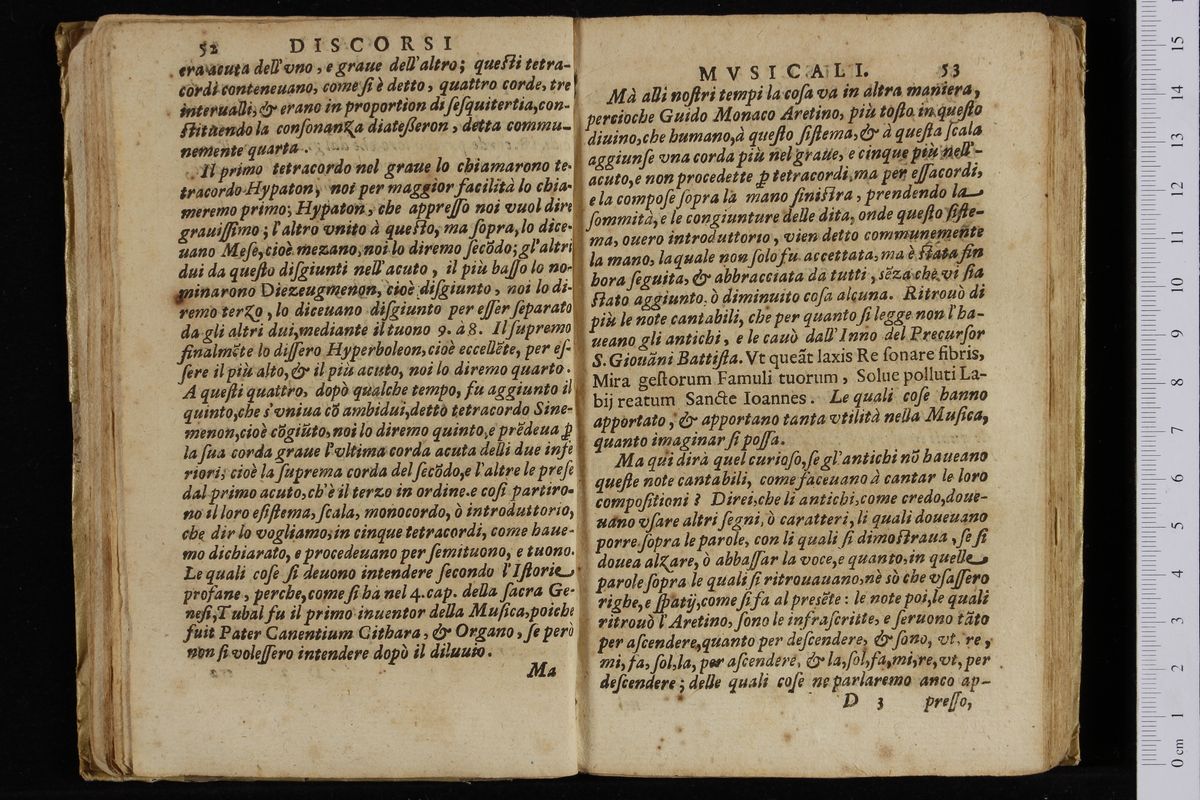 52 DISCORSI
era acuta dell'vno, e graue dell'altro; questi tetra-
cordi conteneuano, come si è detto, quattro corde, tre
interualli, & erano in proportion di sesquitertia, con-
stituendo la consonanza diatesseron, detta commu-
nemente quarta.
Il primo tetracordo nel graue lo chiamarono te-
tracordo Hypaton, noi per maggior facilità lo chia-
meremo primo; Hypaton, che appresso noi vuol dire
grauissimo; l'altro vnito à questo, ma sopra, lo dice-
uano Mese, cioè mezano, noi lo diremo secõdo; gl'altri
dui da questo disgiunti nell'acuto, il più basso lo no-
minarono Diezeugmenon, cioè disgiunto, noi lo di-
remo terzo, lo diceuano disgiunto per esser separato
da gli altri dui, mediante il tuono 9. à 8. Il supremo
finalmẽte lo dissero Hyperboleon, cioè eccellẽte, per es-
sere il più alto, & il più acuto, noi lo diremo quarto.
A questi quattro, dopò qualche tempo, fu aggiunto il
quinto, che s'vniua cõ ambidui, detto tetracordo Sine-
menon, cioè cõgiũto, noi lo diremo quinto, e prẽdeua ꝑ
la sua corda graue l'vltima corda acuta delli due infe
riori; cioè la suprema corda del secõdo, e l'altre le prese
dal primo acuto, ch'è il terzo in ordine. e cosi partiro-
no il loro esistema, scala, monocordo, ò introduttorio,
che dir lo vogliamo, in cinque tetracordi, come haue-
mo dichiarato, e procedeuano per semituono, e tuono.
Le quali cose si deuono intendere secondo l'Istorie
profane, perche, come si ha nel 4. cap. della sacra Ge-
nesi, Tubal fu il primo inuentor della Musica, poiche
fuit Pater Canentium Cithara, & Organo, se però
non si volessero intendere dopò il diluuio.
Ma
MVSICALI. 53
Mà alli nostri tempi la cosa va in altra maniera,
percioche Guido Monaco Aretino, più tosto in questo
diuino, che humano, à questo sistema, & à questa scala
aggiunse vna corda più nel graue, e cinque più nell'-
acuto, e non procedette ꝑ tetracordi, ma per essacordi,
e la compose sopra la mano sinistra, prendendo la
sommità, e le congiunture delle dita, onde questo siste-
ma, ouero introduttorio, vien detto communemente
la mano, laquale non solo fu accettata, ma è stata fin
hora seguita, & abbracciata da tutti, sẽza che vi sia
stato aggiunto, ò diminuito cosa alcuna. Ritrouò di
più le note cantabili, che per quanto si legge non l'ha-
ueano gli antichi, e le cauò dall'Inno del Precursor
S. Giouãni Battista. Vt queãt laxis Re sonare fibris,
Mira gestorum Famuli tuorum, Solue polluti La-
bij reatum Sancte Ioannes. Le quali cose hanno
apportato, & apportano tanta vtilità nella Musica,
quanto imaginar si possa.
Ma qui dirà quel curioso, se gl'antichi nõ haueano
queste note cantabili, come faceuano à cantar le loro
compositioni? Direi, che li antichi, come credo, doue-
uano vsare altri segni, ò caratteri, li quali doueuano
porre sopra le parole, con li quali si dimostraua, se si
douea alzare, ò abbassar la voce, e quanto, in quelle
parole sopra le quali si ritrouauano, nè sò che vsassero
righe, e spatij, come si fa al presẽte: le note poi, le quali
ritrouò l'Aretino, sono le infrascritte, e seruono tãto
per ascendere, quanto per descendere, & sono, vt, re,
mi, fa, sol, la, per ascendere, & la, sol, fa, mi, re, vt, per
descendere; delle quali cose ne parlaremo anco ap-
D 3 presso,
0 cm 1 2 3 4 5 6 7 8 9 10 11 12 13 14 15